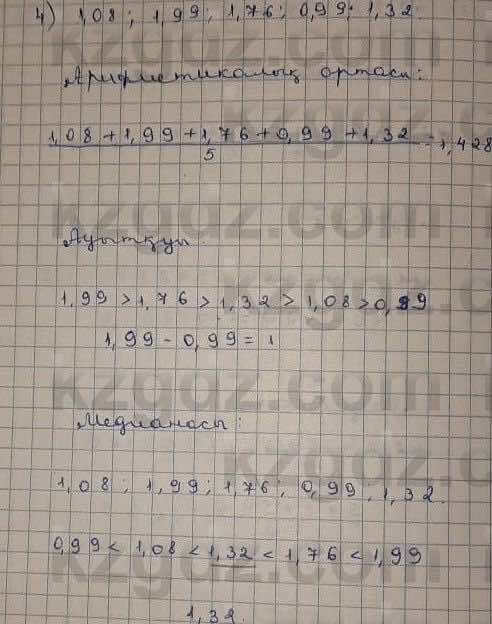 4) 1,08; 1,99; 1,76; 0,99; 1,32.
Арифметикалық ортасы:
1,08 + 1,99 + 1,76 + 0,99 + 1,32 = 1,428
5
Ауытқуы
1,99 > 1,76 > 1,32 > 1,08 > 0,99
1,99 - 0,99 = 1
Медианасы:
1,08; 1,99; 1,76; 0,99; 1,32.
0,99 < 1,08 < 1,32 < 1,76 < 1,99
1,32.